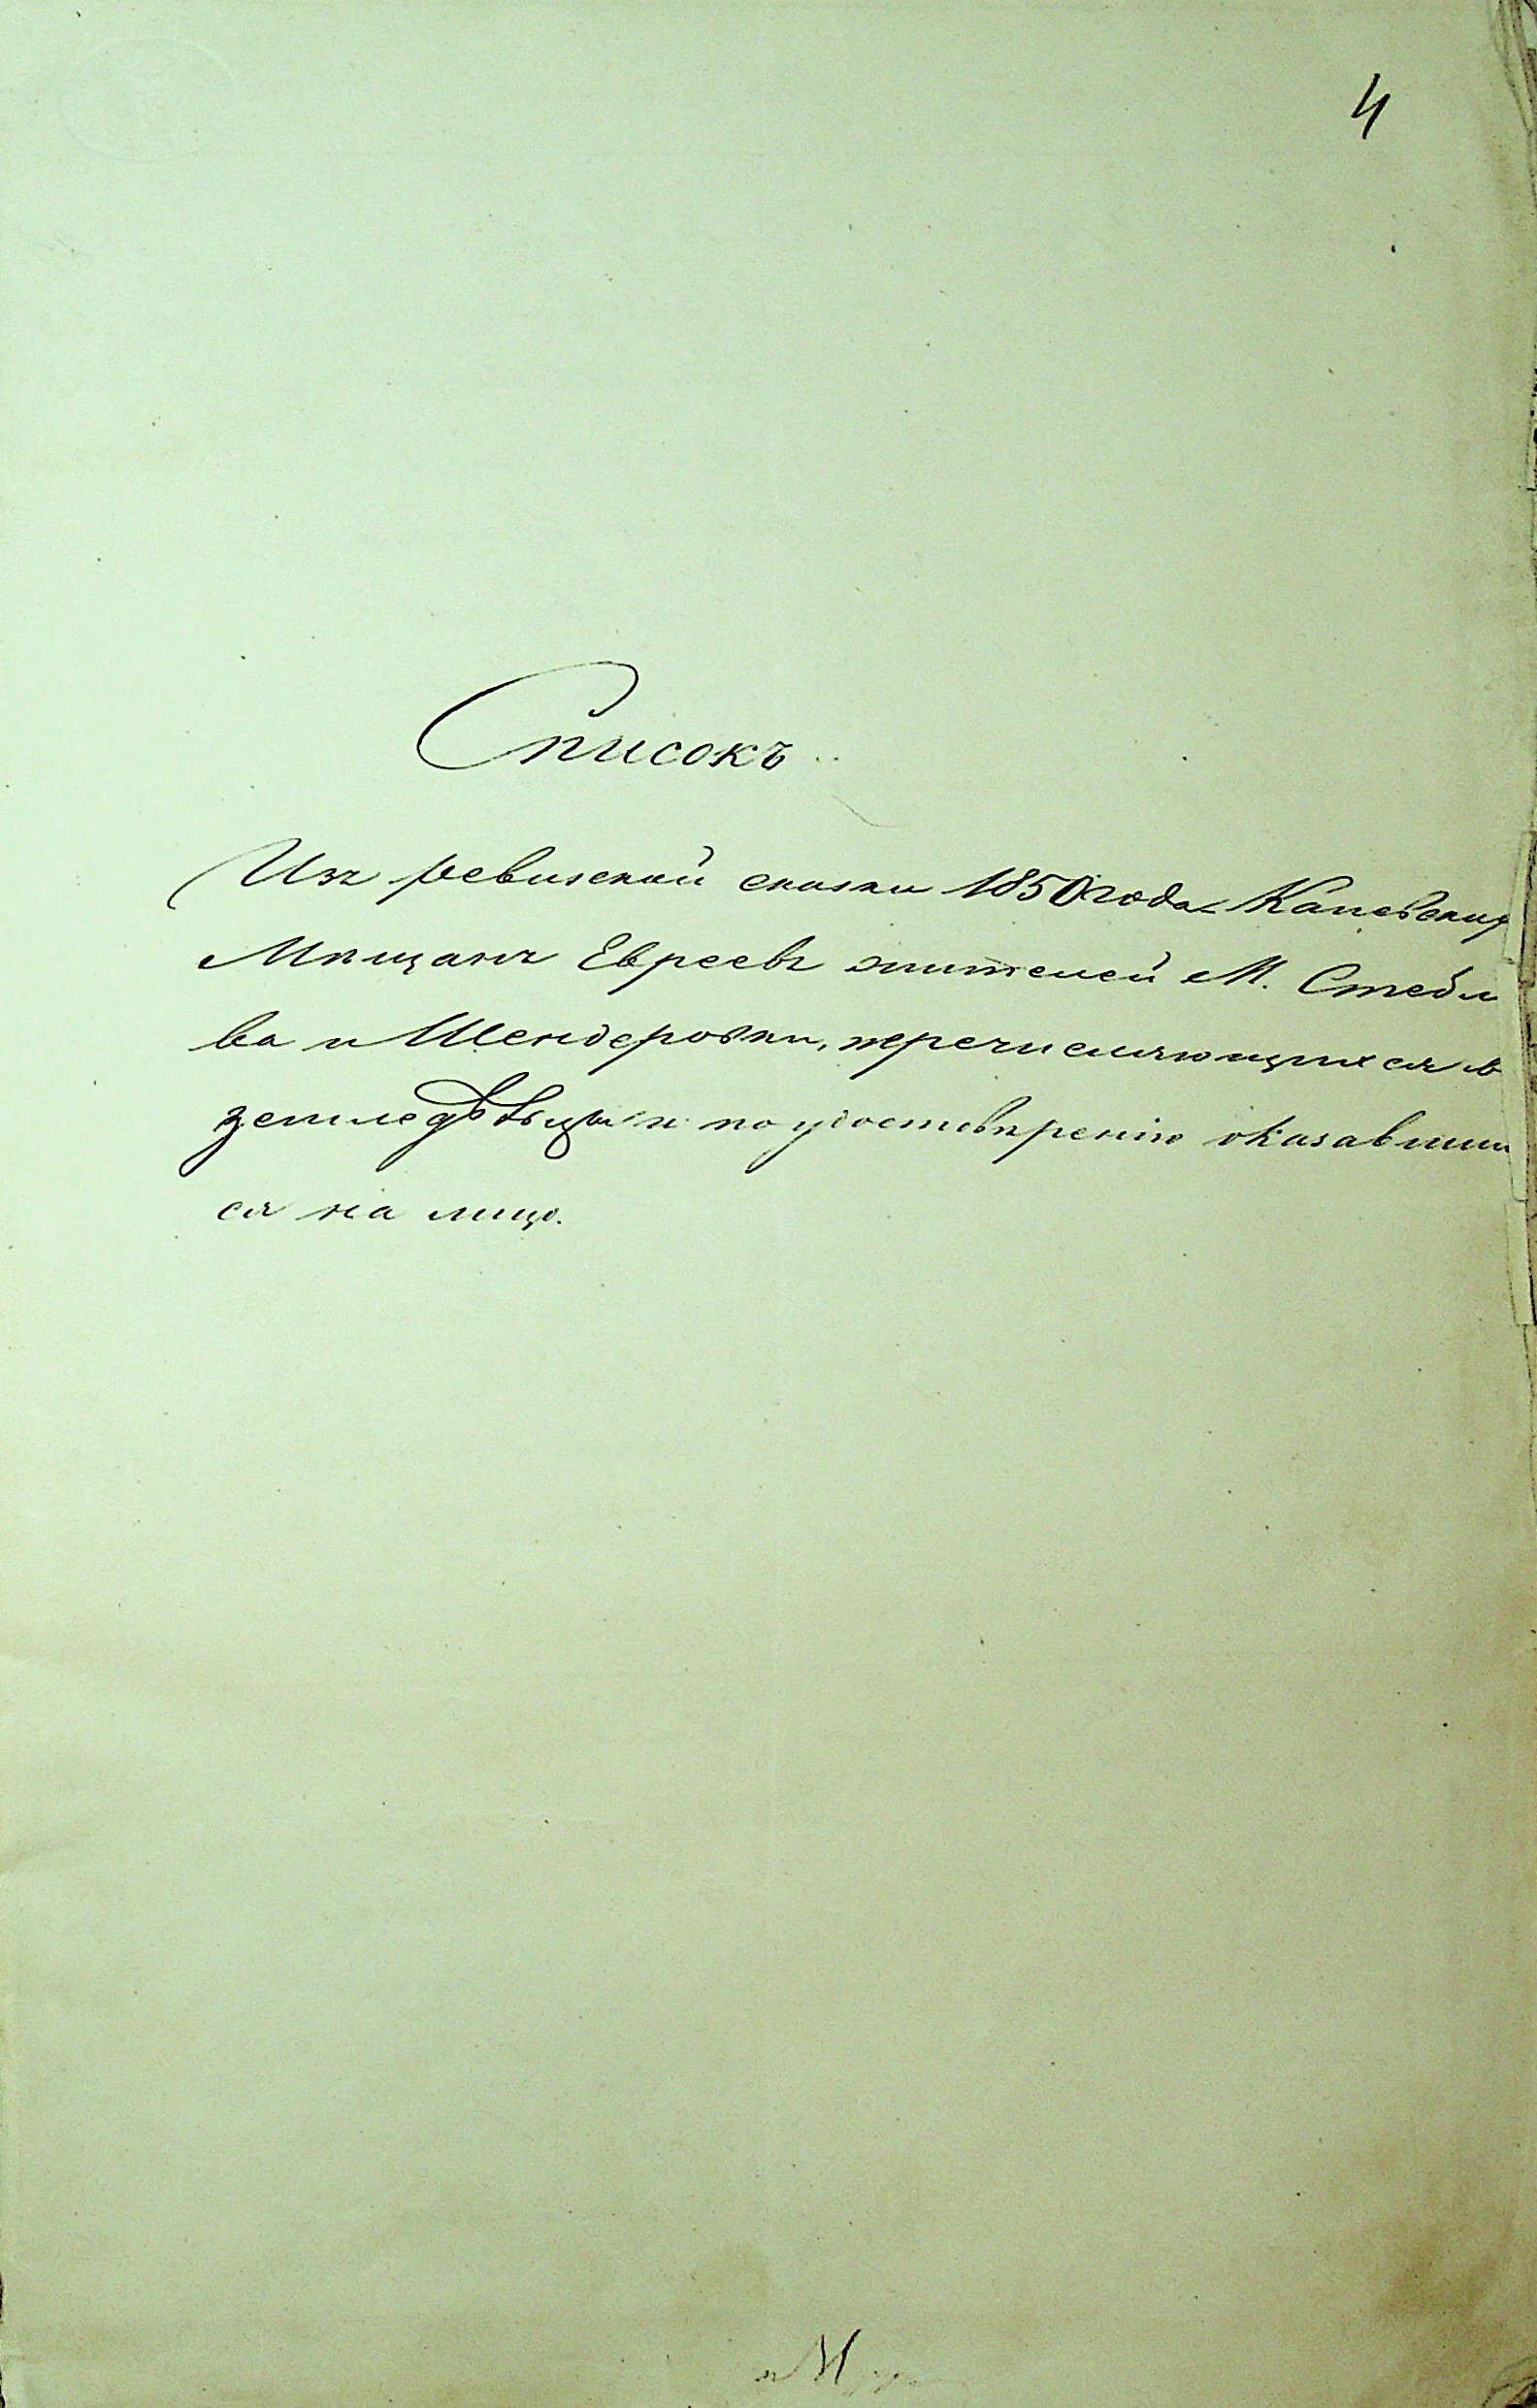 4
Списокъ
Изъ ревизской сказки 1850 года Каневских
Мѣщанъ Евреевъ жителей М. Стебле
ва и Шендеровки, перечисляющихся в
земледѣльцы и по удостовѣренію оказавших
ся на лицо.